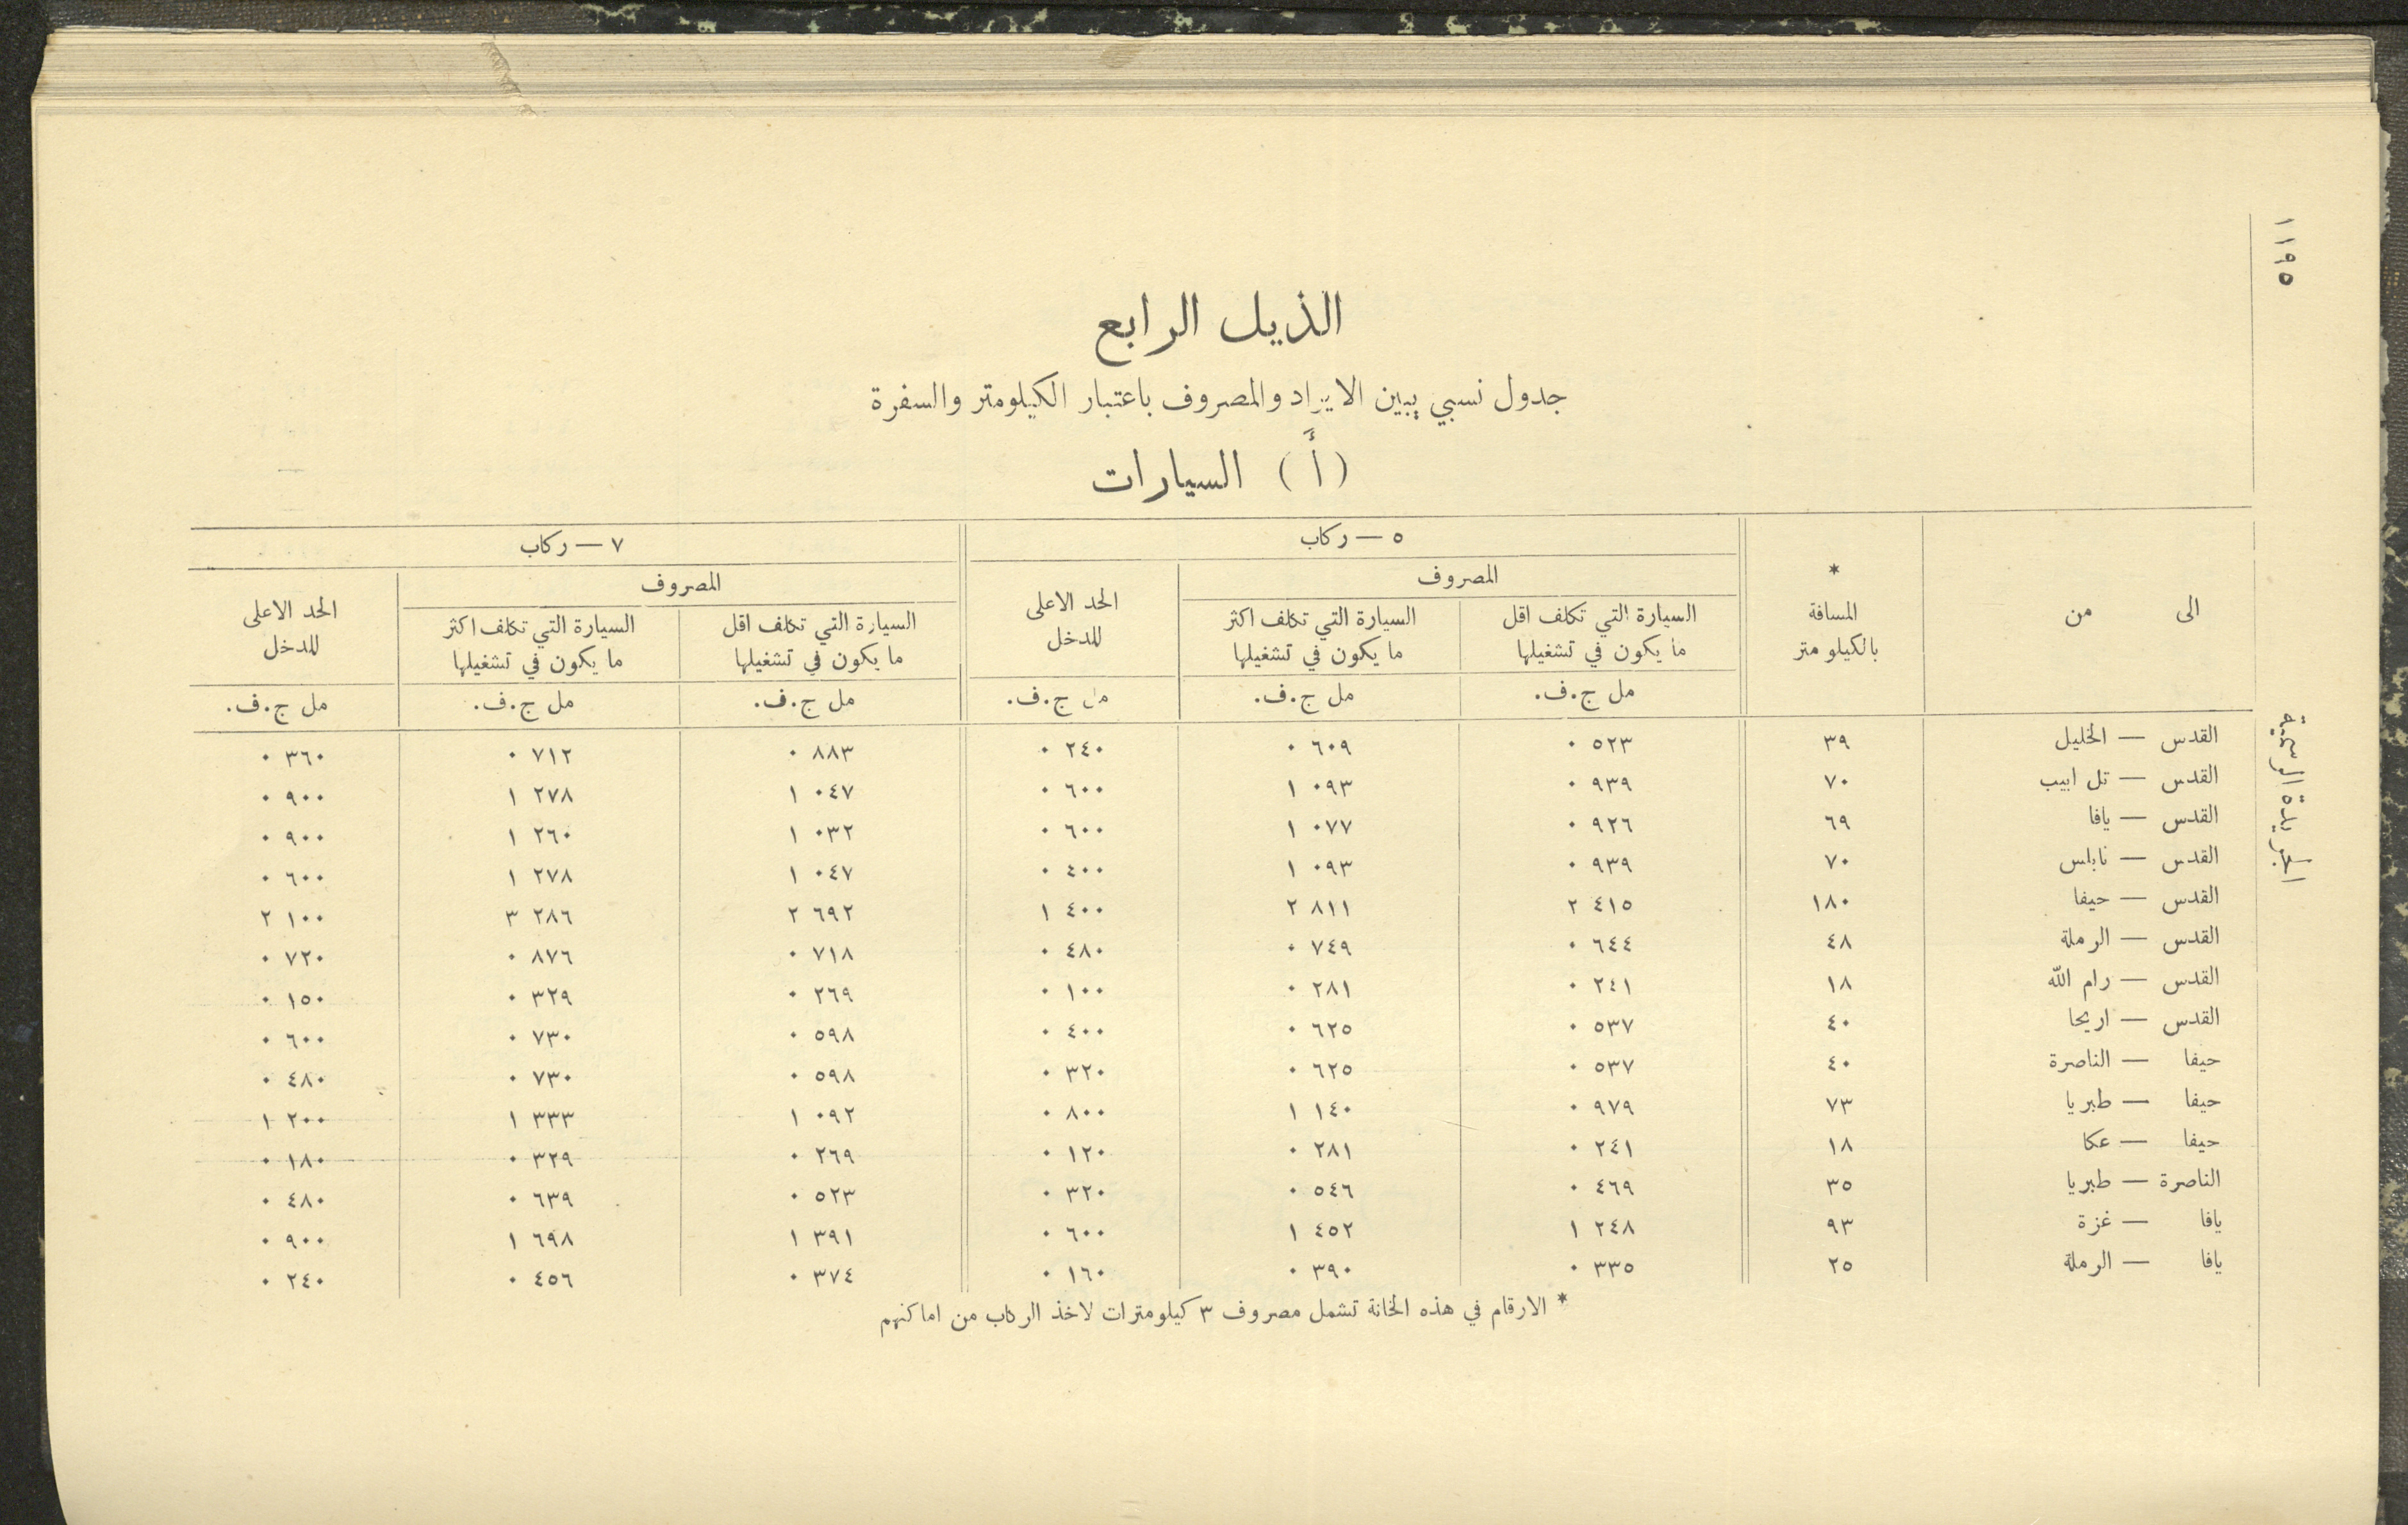 ١١٩٥
الجريدة الرسمية
الذيل الرابع
جدول نسبي يبين الايراد والمصروف باعتبار الكيلومتر والسفرة
(أ) السيارات
٥ — ركاب
٧ — ركاب
الى من
*
المسافة
بالكيلو متر
المصروف
الحد الاعلى
للمدخل
المصروف
الحد الاعلى
للمدخل
السيارة التي تكلف اقل
ما يكون في تشغيلها
السيارة التي تكلف اكثر
ما يكون في تشغيلها
السيارة التي تكلف اقل
ما يكون في تشغيلها
السيارة التي تكلف اكثر
ما يكون في تشغيلها
مل ج.ف. مل ج.ف. مل ج.ف. مل ج.ف. مل ج.ف. مل ج.ف.
القدس — الخليل | ٣٩ | ٠ ٥٢٣ | ٠ ٦٠٩ | ٠ ٢٤٠ | ٠ ٨٨٣ | ٠ ٧١٢ | ٠ ٣٦٠
القدس — تل ابيب | ٧٠ | ٠ ٩٣٩ | ١ ٠٩٣ | ٠ ٦٠٠ | ١ ٠٤٧ | ١ ٢٧٨ | ٠ ٩٠٠
القدس — يافا | ٦٩ | ٠ ٩٢٦ | ١ ٠٧٧ | ٠ ٦٠٠ | ١ ٠٣٢ | ١ ٢٦٠ | ٠ ٩٠٠
القدس — نابلس | ٧٠ | ٠ ٩٣٩ | ١ ٠٩٣ | ٠ ٤٠٠ | ١ ٠٤٧ | ١ ٢٧٨ | ٠ ٦٠٠
القدس — حيفا | ١٨٠ | ٢ ٤١٥ | ٢ ٨١١ | ١ ٤٠٠ | ٢ ٦٩٢ | ٣ ٢٨٦ | ٢ ١٠٠
القدس — الرملة | ٤٨ | ٠ ٦٤٤ | ٠ ٧٤٩ | ٠ ٤٨٠ | ٠ ٧١٨ | ٠ ٨٧٦ | ٠ ٧٢٠
القدس — رام الله | ١٨ | ٠ ٢٤١ | ٠ ٢٨١ | ٠ ١٠٠ | ٠ ٢٦٩ | ٠ ٣٢٩ | ٠ ١٥٠
القدس — اريحا | ٤٠ | ٠ ٥٣٧ | ٠ ٦٢٥ | ٠ ٤٠٠ | ٠ ٥٩٨ | ٠ ٧٣٠ | ٠ ٦٠٠
حيفا — الناصرة | ٤٠ | ٠ ٥٣٧ | ٠ ٦٢٥ | ٠ ٣٢٠ | ٠ ٥٩٨ | ٠ ٧٣٠ | ٠ ٤٨٠
حيفا — طبريا | ٧٣ | ٠ ٩٧٩ | ١ ١٤٠ | ٠ ٨٠٠ | ١ ٠٩٢ | ١ ٣٣٣ | ١ ٢٠٠
حيفا — عكا | ١٨ | ٠ ٢٤١ | ٠ ٢٨١ | ٠ ١٢٠ | ٠ ٢٦٩ | ٠ ٣٢٩ | ٠ ١٨٠
الناصرة — طبريا | ٣٥ | ٠ ٤٦٩ | ٠ ٥٤٦ | ٠ ٣٢٠ | ٠ ٥٢٣ | ٠ ٦٣٩ | ٠ ٤٨٠
يافا — غزة | ٩٣ | ١ ٢٤٨ | ١ ٤٥٢ | ٠ ٦٠٠ | ١ ٣٩١ | ١ ٦٩٨ | ٠ ٩٠٠
يافا — الرملة | ٢٥ | ٠ ٣٣٥ | ٠ ٣٩٠ | ٠ ١٦٠ | ٠ ٣٧٤ | ٠ ٤٥٦ | ٠ ٢٤٠
* الارقام في هذه الخانة تشمل مصروف ٣ كيلومترات لاخذ الركاب من اماكنهم